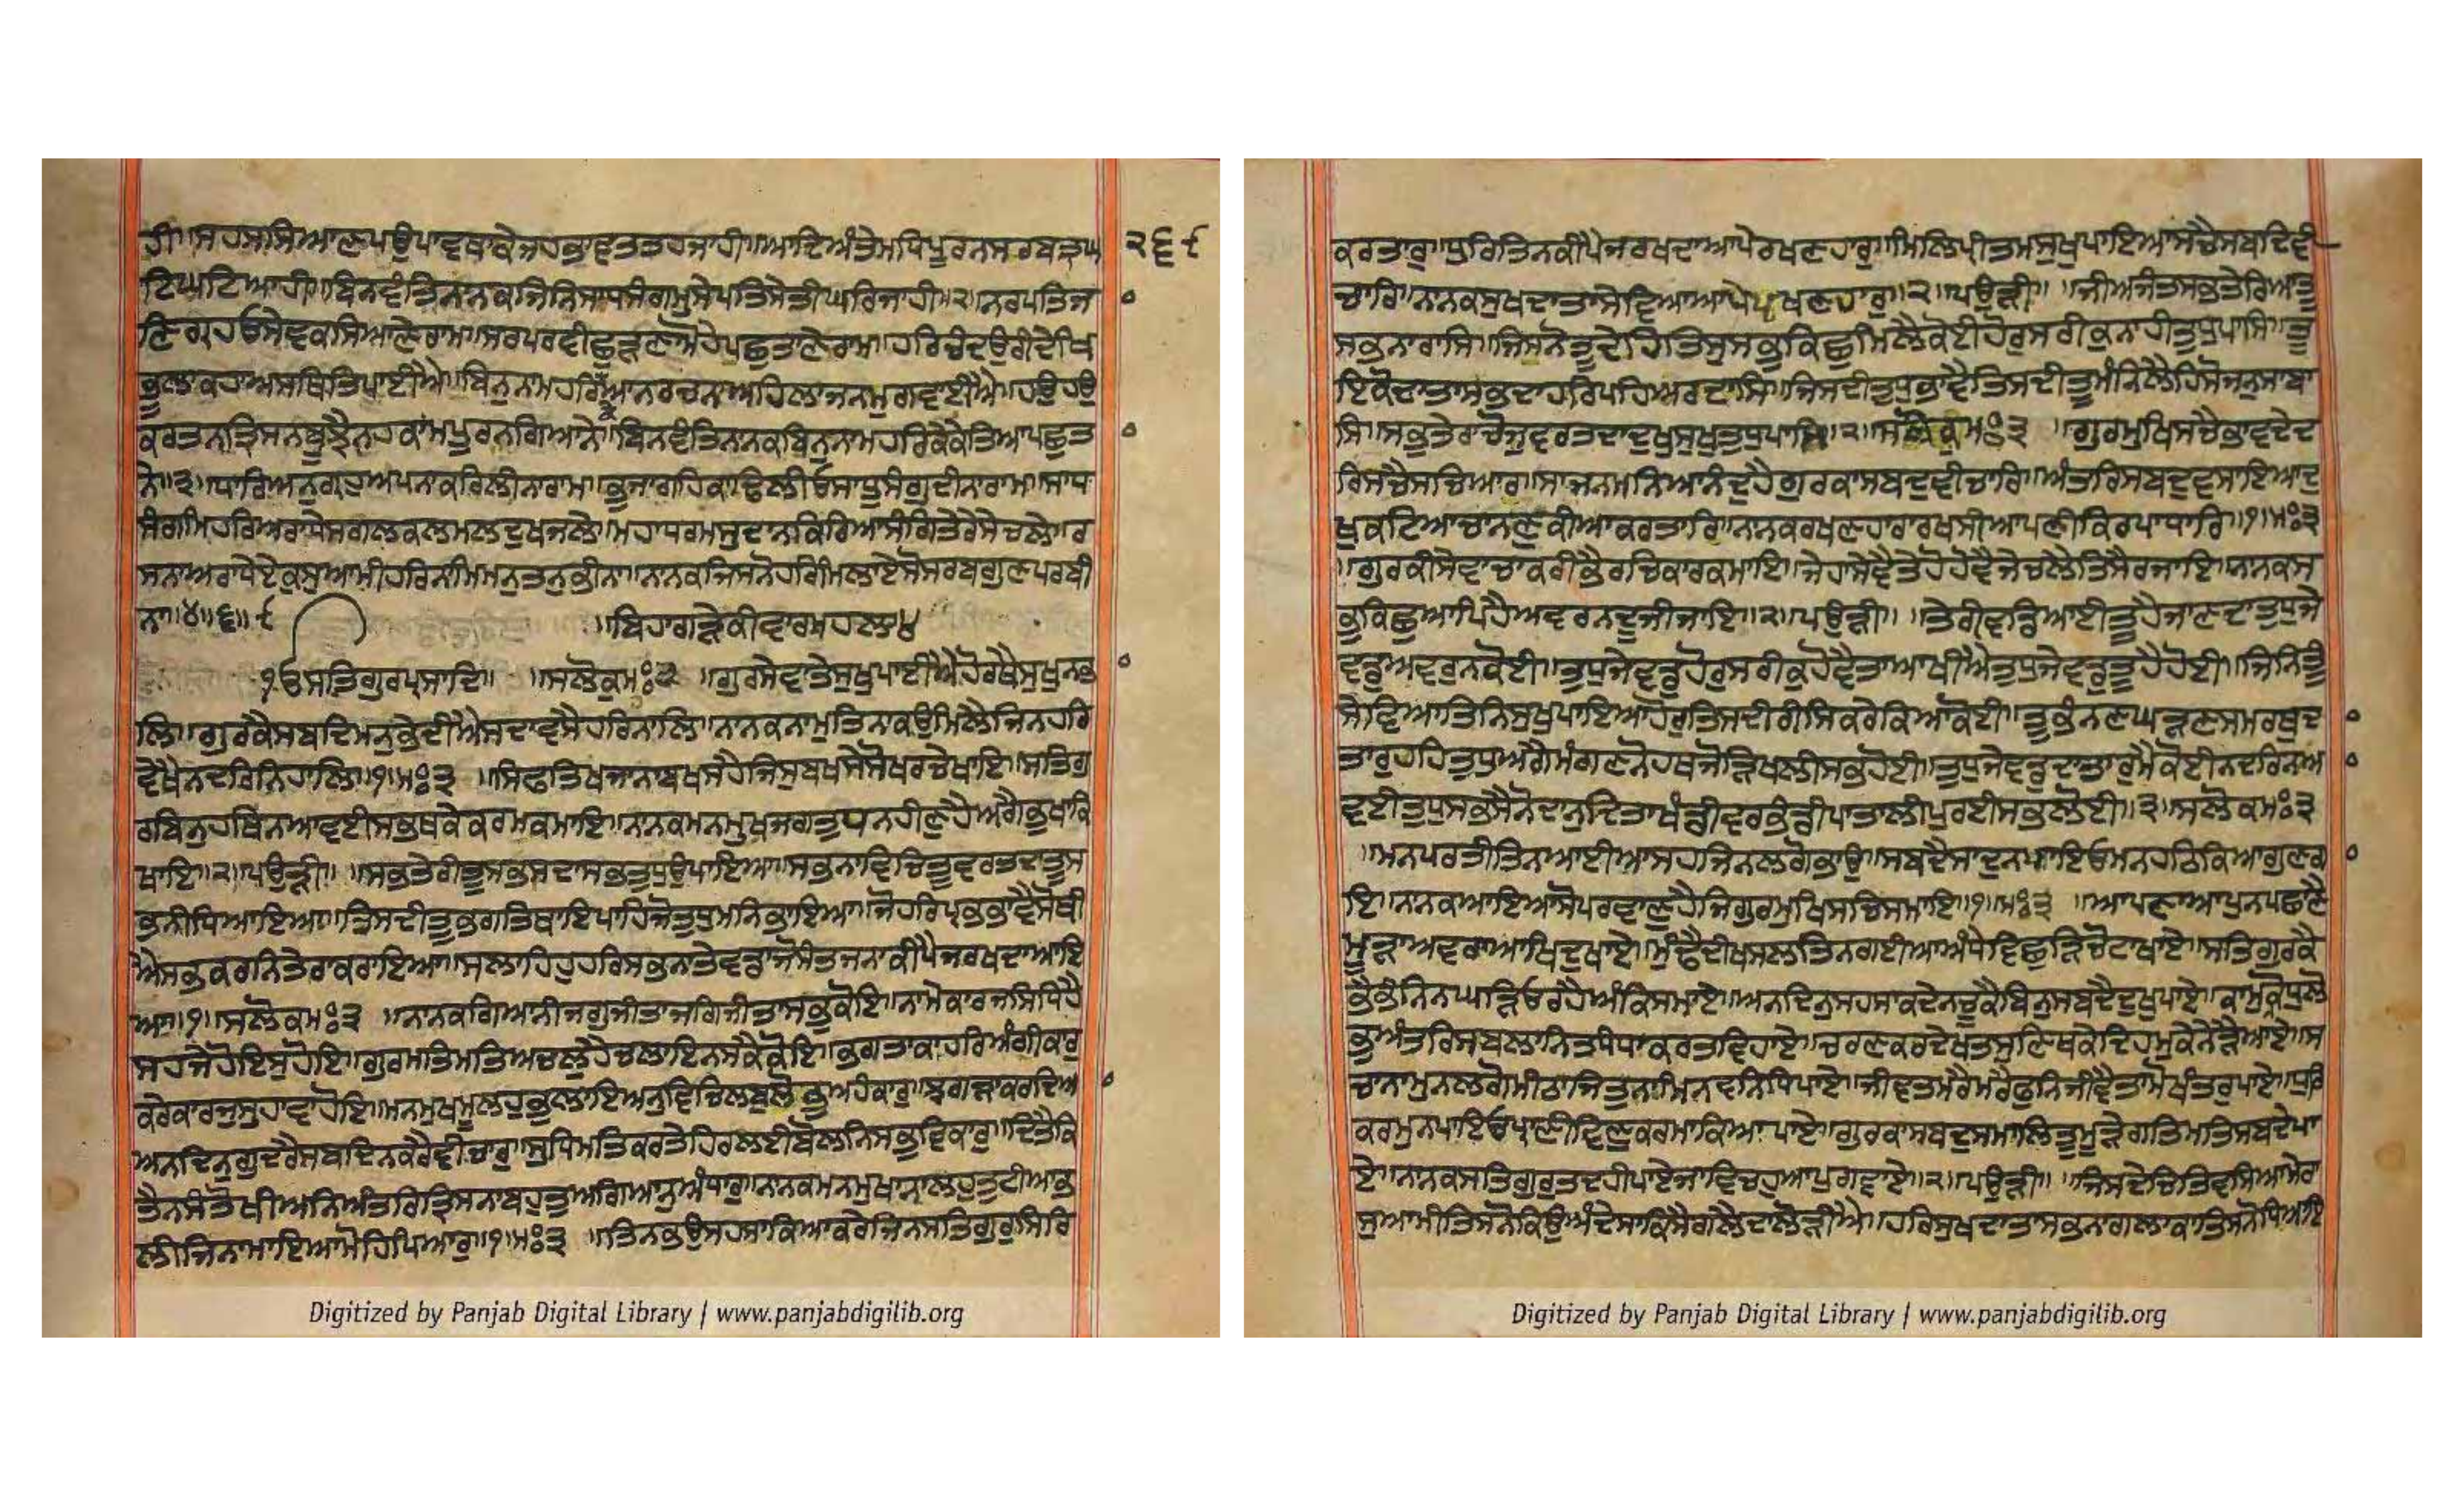 ਹੀ॥ਸਹਸਸਿਆਣਪਉਪਾਵਥਾਕੇਜਹਭਾਵਤਤਹਜਾਹੀ॥ਆਦਿਅੰਤੇਮਧਿਪੂਰਨਸਰਬਤ੍ਰਘ
੨੬੯
ਟਿਘਟਿਆਹੀ॥ਬਿਨਵੰਤਿਨਾਨਕਜਿਨਿਸਾਧਸੰਗਮੁਸੇਪਤਿਸੇਤੀਘਰਿਜਾਹੀ॥੨॥ਨਰਪਤਿਜ
ਕਰਤਨਤ੍ਰਿਸਨਬੁਝੈਨਹਕਾਮਪੂਰਨਗਿਆਨੇ॥ਬਿਨਵੰਤਿਨਾਨਕਬਿਨੁਨਾਮਹਰਿਕੇਕੇਤਿਆਪਛੁਤ
ਨੇ॥੩॥ਧਾਰਿਅਨੁਗ੍ਰਹੁਅਪਨਾਕਰਿਲੀਨਾਰਾਮ॥ਭੁਜਾਗਹਿਕਾਢਿਲੀਓਸਾਧੂਸੰਗੁਦੀਨਾਰਾਮ॥ਸਾਧ
ਸੰਗਮਿਹਰਿਅਰਾਧੇਸਗਲਕਲਮਲਦੁਖਜਲੇ॥ਮਹਾਧਰਮਸੁਦਾਨਕਿਰਿਆਸੰਗਿਤੇਰੈਸੇਚਲੇ॥ਰ
ਸਨਾਅਰਾਧੇਏਕੁਸੁਆਮੀਹਰਿਨਾਮਿਮਨੁਤਨੁਭੀਨਾ॥ਨਾਨਕਜਿਸਨੋਹਰਿਮਿਲਾਏਸੋਸਰਬਗੁਣਪਰਬੀ
ਨਾ॥੪॥੬॥੯
॥ਬਿਹਾਗੜੇਕੀਵਾਰਮਹਲਾ੪
ੴਸਤਿਗੁਰਪ੍ਰਸਾਦਿ॥ ॥ਸਲੋਕੁਮਃ੩ ॥ਗੁਰਸੇਵਾਤੇਸੁਖੁਪਾਈਐਹੋਰਥੈਸੁਖੁਨਭ
ਲਿ॥ਗੁਰਕੈਸਬਦਿਮਨੁਭੇਦੀਐਸਦਾਵਸੈਹਰਿਨਾਲਿ॥ਨਾਨਕਨਾਮੁਤਿਨਾਕਉਮਿਲੈਜਿਨਹਰਿ
ਵੇਖੈਨਦਰਿਨਿਹਾਲਿ॥੧॥ਮਃ੩ ॥ਸਿਫਤਿਖਜਾਨਾਬਖਸਹੈਜਿਸੁਬਖਸੇਸੋਖਰਚੇਖਾਇ॥ਸਤਿਗੁ
ਰਬਿਨੁਹਥਿਨਆਵਈਸਭਥਕੇਕਰਮਕਮਾਇ॥ਨਾਨਕਮਨਮੁਖਜਗਤੁਧਨਹੀਣੁਹੈਅਗੈਭੁਖਾਕਿ
ਖਾਇ॥੨॥ਪਉੜੀ॥ ॥ਸਭਤੇਰੀਤੂਸਭਸਦਾਸਭਤੁਧੁਉਪਾਇਆ॥ਸਭਨਾਵਿਚਿਤੂਵਰਤਦਾਤੂਸ
ਭਨੀਧਿਆਇਆ॥ਤਿਸਦੀਤੂਭਗਤਿਥਾਇਪਾਹਿਜੋਤੁਧੁਮਨਿਭਾਇਆ॥ਜੋਹਰਿਪ੍ਰਭਭਾਵੈਸੋਥੀ
ਐਸਭਕਰਨਿਤੇਰਾਕਰਾਇਆ॥ਸਲਾਹਿਹੁਹਰਿਸਭਨਾਤੇਵਡਾਜੋਸੰਤਜਨਾਕੀਪੈਜਰਖਦਾਆਇ
ਆ॥੧॥ਸਲੋਕਮਃ੩ ॥ਨਾਨਕਗਿਆਨੀਜਗੁਜੀਤਾਜਗਿਜੀਤਾਸਭੁਕੋਇ॥ਨਾਮੇਕਾਰਜਸਿਧਿਹੈ
ਸਹਜੇਹੋਇਸੁਹੋਇ॥ਗੁਰਮਤਿਮਤਿਅਚਲੁਹੈਚਲਾਇਨਸਕੈਕੋਇ॥ਭਗਤਾਕਾਹਰਿਅੰਗੀਕਾਰੁ
ਕਰੇਕਾਰਜੁਸੁਹਾਵਾਹੋਇ॥ਮਨਮੁਖਮੂਲਹੁਭੁਲਾਇਅਨੁਵਿਚਿਲਬੁਲੋਭੁਅਹੰਕਾਰੁ॥ਝਗੜਾਕਰਦਿਆ
ਅਨਦਿਨੁਗੁਦਰੈਸਬਦਿਨਕਰੈਵੀਚਾਰੁ॥ਸੁਧਿਮਤਿਕਰਤੇਹਿਰਲਈਬੋਲਨਿਸਭੁਵਿਕਾਰੁ॥ਦਿਤੈਕਿ
ਤੈਨਸੰਤੋਖੀਅਨਿਅੰਤਰਿਤ੍ਰਿਸਨਾਬਹੁਤੁਅਗਿਆਨੁਅੰਧਾਰੁ॥ਨਾਨਕਮਨਮੁਖਾਨਾਲਹੁਤੁਟੀਆਭ
ਲੀਜਿਨਾਮਾਇਆਮੋਹਿਪਿਆਰੁ॥੧॥ਮਃ੩ ॥ਤਿਨਭਉਸਹਸਾਕਿਆਕਰੇਜਿਨਸਤਿਗੁਰੁਸਿਰਿ
Digitized by Panjab Digital Library | www.panjabdigilib.org
ਕਰਤਾਰੁ॥ਧੁਰਿਤਿਨਕੀਪੈਜਰਖਦਾਆਪੇਰਖਣਹਾਰੁ॥ਮਿਲਿਪ੍ਰੀਤਮਸੁਖੁਪਾਇਆਸਚੈਸਬਦਿਵੀ
ਚਾਰਿ॥ਨਾਨਕਸੁਖਦਾਤਾਸੇਵਿਆਆਪੇਪਰਖਣਹਾਰੁ॥੨॥ਪਉੜੀ॥ ॥ਜੀਅਜੰਤਸਭਤੇਰਿਆਤੂ
ਸਭਨਾਰਾਸਿ॥ਜਿਸਨੋਤੂਦੇਹਿਤਿਸੁਸਭੁਕਿਛੁਮਿਲੈਕੋਈਹੋਰੁਸਰੀਕੁਨਾਹੀਤੁਧੁਪਾਸਿ॥ਤੂ
ਇਕੋਦਾਤਾਸਭਦਾਹਰਿਪਹਿਅਰਦਾਸਿ॥ਜਿਸਦੀਤੁਧੁਭਾਵੈਤਿਸਦੀਤੂਮੰਨਿਲੈਹਿਸੋਜਨੁਸਾਬਾ
ਸਿ॥ਸਭੁਤੇਰਾਚੋਜੁਵਰਤਦਾਦੁਖੁਸੁਖੁਤੁਧੁਪਾਸਿ॥੨॥ਸਲੋਕੁਮਃ੩ ॥ਗੁਰਮੁਖਿਸਚੈਭਾਵਦੇਦ
ਰਿਸਚੈਸਚਿਆਰ॥ਸਾਜਨਮਨਿਆਨੰਦੁਹੈਗੁਰਕਾਸਬਦੁਵੀਚਾਰਿ॥ਅੰਤਰਿਸਬਦੁਵਸਾਇਆਦੁ
ਖੁਕਟਿਆਚਾਨਣੁਕੀਆਕਰਤਾਰਿ॥ਨਾਨਕਰਖਣਹਾਰਾਰਖਸੀਆਪਣੀਕਿਰਪਾਧਾਰਿ॥੧॥ਮਃ੩
॥ਗੁਰਕੀਸੇਵਾਚਾਕਰੀਭੈਰਚਿਕਾਰਕਮਾਇ॥ਜੇਹਾਸੇਵੈਤੇਹੋਹੋਵੈਜੇਚਲੈਤਿਸੈਰਜਾਇ॥ਨਾਨਕਸ
ਭੁਕਿਛੁਆਪਿਹੈਅਵਰਨਦੂਜੀਜਾਇ॥੨॥ਪਉੜੀ॥ ॥ਤੇਰੀਵਡਿਆਈਤੂਹੈਜਾਣਦਾਤੁਧੁਜੇ
ਵਡੁਅਵਰੁਨਕੋਈ॥ਤੁਧੁਜੇਵਡੁਹੋਰੁਸਰੀਕੁਹੋਵੈਤਾਆਖੀਐਤੁਧੁਜੇਵਡੁਤੂਹੈਹੋਈ॥ਜਿਨਿਤੂ
ਸੇਵਿਆਤਿਨਿਸੁਖੁਪਾਇਆਹੋਰੁਤਿਸਦੀਰੀਸਕਰੇਕਿਆਕੋਈ॥ਤੂਭੰਨਣਘੜਣਸਮਰਥੁਦ
ਤਾਰੁਹਹਿਤੁਧੁਅਗੈਮੰਗਣਨੋਹਥਜੋੜਿਖਲੀਸਭਹੋਈ॥ਤੁਧੁਜੇਵਡੁਦਾਤਾਰੁਮੈਕੋਈਨਦਰਿਨਆ
ਵਈਤੁਧੁਸਭਸੈਨੋਦਾਨੁਦਿਤਾਖੰਡੀਵਰਭੰਡੀਪਾਤਾਲੀਪੁਰਈਸਭਲੋਈ॥੩॥ਸਲੋਕਮਃ੩
॥ਮਨਪਰਤੀਤਿਨਆਈਆਸਹਜਿਨਲਗੋਭਾਉ॥ਸਬਦੈਸਾਦੁਨਪਾਇਓਮਨਹਠਿਕਿਆਗੁਣਗ
ਇ॥ਨਾਨਕਆਇਆਸੋਪਰਵਾਣੁਹੈਜਿਗੁਰਮੁਖਿਸਚਿਸਮਾਇ॥੧॥ਮਃ੩ ॥ਆਪਣਾਆਪੁਨਪਛਾਣੈ
ਮੂੜਾਅਵਰਾਆਖਿਦੁਖਾਏ॥ਮੁੰਢੈਦੀਖਸਲਤਿਨਗਈਆਅੰਧੇਵਿਛੁੜਿਚੋਟਾਖਾਏ॥ਸਤਿਗੁਰਕੈ
ਭੈਭੰਨਿਨਘੜਿਓਰਹੈਅੰਕਿਸਮਾਏ॥ਅਨਦਿਨੁਸਹਸਾਕਦੇਨਚੂਕੈਬਿਨੁਸਬਦੈਦੁਖੁਪਾਏ॥ਕਾਮੁਕ੍ਰੋਧੁਲੋ
ਭੁਅੰਤਰਿਸਬਲਾਨਿਤਧੰਧਾਕਰਤਵਿਹਾਏ॥ਚਰਣਕਰਦੇਖਤਸੁਣਿਥਕੇਦਿਹਮੁਕੇਨੇੜੈਆਏ॥ਸ
ਚਾਨਾਮੁਨਲਗੋਮੀਠਾਜਿਤੁਨਾਮਿਨਵਨਿਧਿਪਾਏ॥ਜੀਵਤੁਮਰੈਮਰੈਫੁਨਿਜੀਵੈਤਾਂਮੋਖੰਤਰੁਪਾਏ॥ਧੁਰਿ
ਕਰਮੁਨਪਾਇਓਪ੍ਰਾਣੀਵਿਣੁਕਰਮਾਕਿਆਪਾਏ॥ਗੁਰਕਾਸਬਦੁਸਮਾਲਿਤੂਮੂੜੇਗਤਿਮਤਿਸਬਦੇਪਾ
ਏ॥ਨਾਨਕਸਤਿਗੁਰੁਤਦਹੀਪਾਏਜਾਂਵਿਚਹੁਆਪੁਗਵਾਏ॥੨॥ਪਉੜੀ॥ ॥ਜਿਸਦੇਚਿਤਿਵਸਿਆਮੇਰਾ
ਸੁਆਮੀਤਿਸਨੋਕਿਉਅੰਦੇਸਾਕਿਸੈਗਲੈਦਾਲੋੜੀਐ॥ਹਰਿਸੁਖਦਾਤਾਸਭਨਾਗਲਾਕਾਤਿਸਨੋਧਿਆਇ
Digitized by Panjab Digital Library | www.panjabdigilib.org